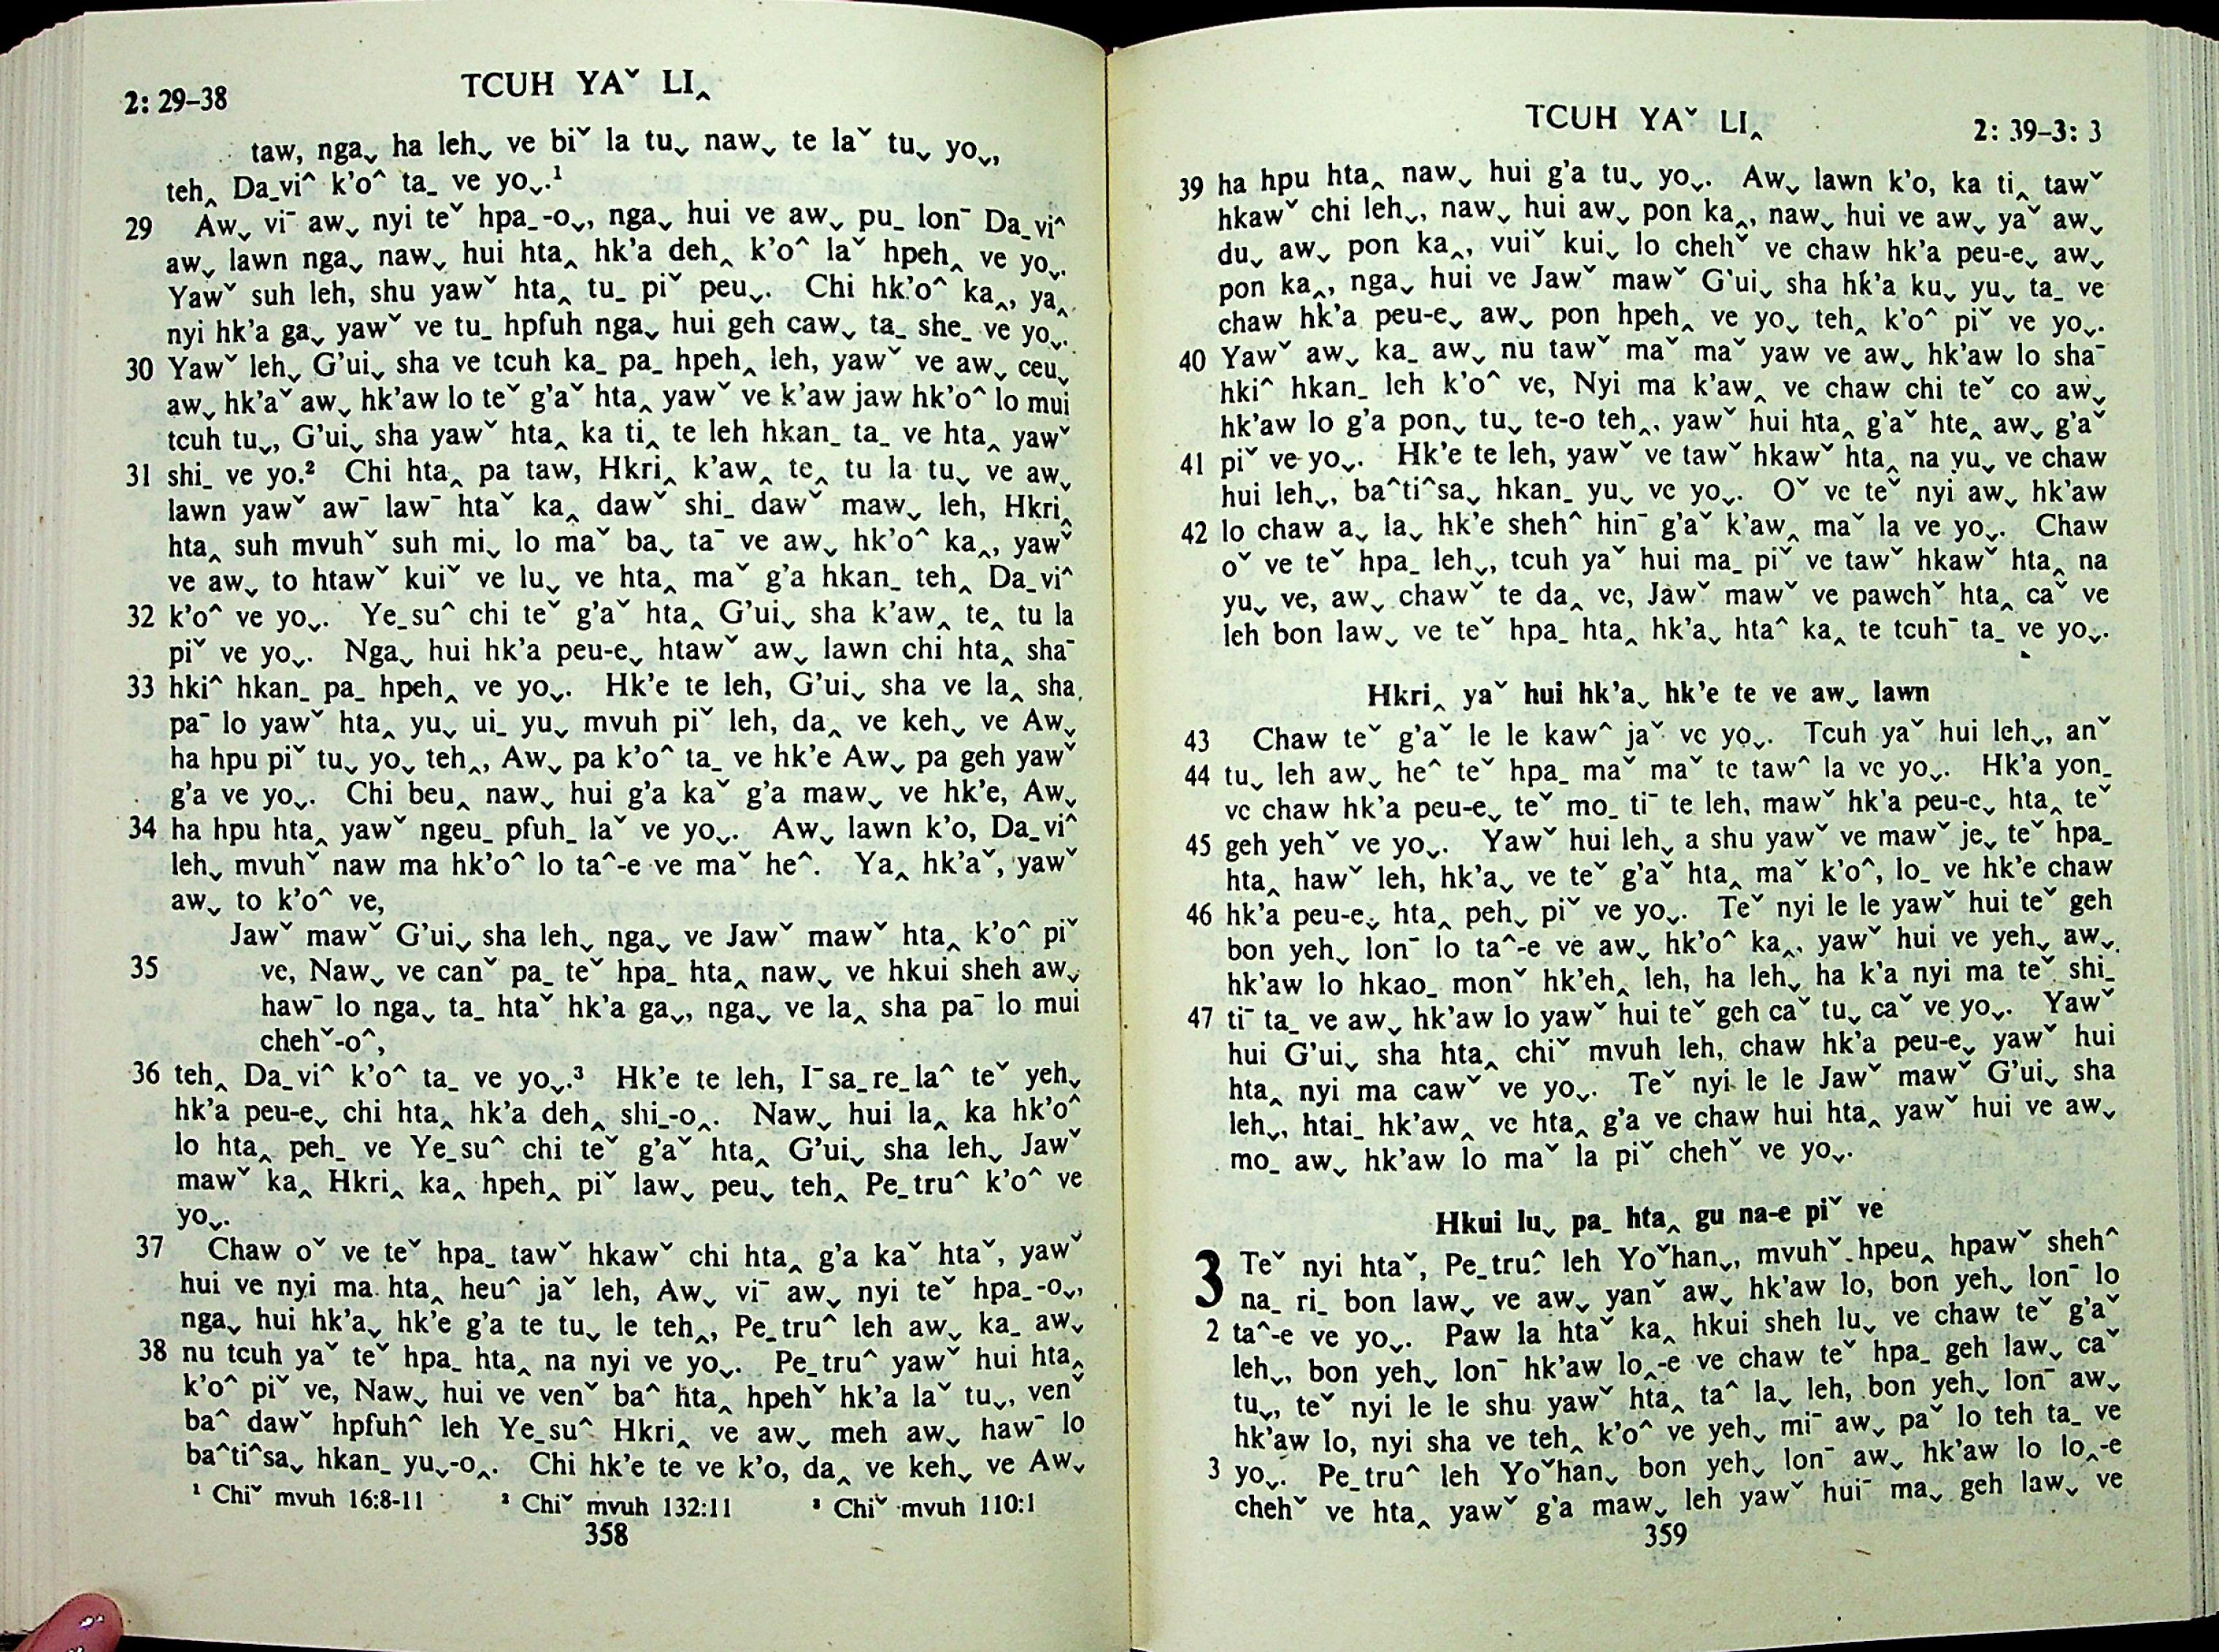 2: 29–38
TCUH YAˇ LI‸
taw, ngaˬ ha lehˬ ve biˇ la tuˬ nawˬ te laˇ tuˬ yoˬ,
teh‸ Da_vi^ k'o^ ta_ ve yoˬ.¹
29 Awˬ viˉ awˬ nyi teˇ hpa_-oˬ, ngaˬ hui ve awˬ pu_ lonˉ Da_vi^
awˬ lawn ngaˬ nawˬ hui hta‸ hk'a deh‸ k'o^ laˇ hpeh‸ ve yoˬ.
Yawˇ suh leh, shu yawˇ hta‸ tu_ piˇ peuˬ. Chi hk'o^ ka‸, ya‸
nyi hk'a gaˬ yawˇ ve tu_ hpfuh ngaˬ hui geh cawˬ ta_ she_ ve yoˬ.
30 Yawˇ lehˬ G'uiˬ sha ve tcuh ka_ pa_ hpeh‸ leh, yawˇ ve awˬ ceuˬ
awˬ hk'aˇ awˬ hk'aw lo teˇ g'aˇ hta‸ yawˇ ve k'aw jaw hk'o^ lo mui
tcuh tuˬ, G'uiˬ sha yawˇ hta‸ ka ti‸ te leh hkan_ ta_ ve hta‸ yawˇ
31 shi_ ve yo.² Chi hta‸ pa taw, Hkri‸ k'aw‸ te‸ tu la tuˬ ve awˬ
lawn yawˇ awˉ lawˉ htaˇ ka‸ dawˇ shi_ dawˇ mawˬ leh, Hkri‸
hta‸ suh mvuhˇ suh miˬ lo maˇ baˬ taˉ ve awˬ hk'o^ ka‸, yawˇ
ve awˬ to htawˇ kuiˇ ve luˬ ve hta‸ maˇ g'a hkan_ teh‸ Da_vi^
32 k'o^ ve yoˬ. Ye_su^ chi teˇ g'aˇ hta‸ G'uiˬ sha k'aw‸ te‸ tu la
piˇ ve yoˬ. Ngaˬ hui hk'a peu-eˬ htawˇ awˬ lawn chi hta‸ shaˉ
33 hki^ hkan_ pa_ hpeh‸ ve yoˬ. Hk'e te leh, G'uiˬ sha ve la‸ sha‸
paˉ lo yawˇ hta‸ yuˬ ui_ yuˬ mvuh piˇ leh, da‸ ve kehˬ ve Awˬ
ha hpu piˇ tuˬ yoˬ teh‸, Awˬ pa k'o^ ta_ ve hk'e Awˬ pa geh yawˇ
g'a ve yoˬ. Chi beu‸ nawˬ hui g'a kaˇ g'a mawˬ ve hk'e, Awˬ
34 ha hpu hta‸ yawˇ ngeu_ pfuh_ laˇ ve yoˬ. Awˬ lawn k'o, Da_vi^
lehˬ mvuhˇ naw ma hk'o^ lo ta^-e ve maˇ he^. Ya‸ hk'aˇ, yawˇ
awˬ to k'o^ ve,
Jawˇ mawˇ G'uiˬ sha lehˬ ngaˬ ve Jawˇ mawˇ hta‸ k'o^ piˇ
35 ve, Nawˬ ve canˇ pa_ teˇ hpa_ hta‸ nawˬ ve hkui sheh awˬ
hawˉ lo ngaˬ ta_ htaˇ hk'a gaˬ, ngaˬ ve la‸ sha paˉ lo mui
chehˇ-o^,
36 teh‸ Da_vi^ k'o^ ta_ ve yoˬ.³ Hk'e te leh, Iˉsa_re_la^ teˇ yehˬ
hk'a peu-eˬ chi hta‸ hk'a deh‸ shi_-o‸. Nawˬ hui la‸ ka hk'o^
lo hta‸ peh_ ve Ye_su^ chi teˇ g'aˇ hta‸ G'uiˬ sha lehˬ Jawˇ
mawˇ ka‸ Hkri‸ ka‸ hpeh‸ piˇ lawˬ peuˬ teh‸ Pe_tru^ k'o^ ve
yoˬ.
37 Chaw oˇ ve teˇ hpa_ tawˇ hkawˇ chi hta‸ g'a kaˇ htaˇ, yawˇ
hui ve nyi ma hta‸ heu^ jaˇ leh, Awˬ viˉ awˬ nyi teˇ hpa_-oˬ,
ngaˬ hui hk'aˬ hk'e g'a te tuˬ le teh‸, Pe_tru^ leh awˬ ka_ awˬ
38 nu tcuh yaˇ teˇ hpa_ hta‸ na nyi ve yoˬ. Pe_tru^ yawˇ hui hta‸
k'o^ piˇ ve, Nawˬ hui ve venˇ ba^ hta‸ hpehˇ hk'a laˇ tuˬ, venˇ
ba^ dawˇ hpfuh^ leh Ye_su^ Hkri‸ ve awˬ meh awˬ hawˉ lo
ba^ti^saˬ hkan_ yuˬ-o‸. Chi hk'e te ve k'o, da‸ ve kehˬ ve Awˬ
¹ Chiˇ mvuh 16:8-11 ² Chiˇ mvuh 132:11 ³ Chiˇ mvuh 110:1
358
TCUH YAˇ LI‸
2: 39–3: 3
39 ha hpu hta‸ nawˬ hui g'a tuˬ yoˬ. Awˬ lawn k'o, ka ti‸ tawˇ
hkawˇ chi lehˬ, nawˬ hui awˬ pon ka‸, nawˬ hui ve awˬ yaˇ awˬ
duˬ awˬ pon ka‸, vuiˇ kuiˬ lo chehˇ ve chaw hk'a peu-eˬ awˬ
pon ka‸, ngaˬ hui ve Jawˇ mawˇ G'uiˬ sha hk'a kuˬ yuˬ ta_ ve
chaw hk'a peu-eˬ awˬ pon hpeh‸ ve yoˬ teh‸ k'o^ piˇ ve yoˬ.
40 Yawˇ awˬ ka_ awˬ nu tawˇ maˇ maˇ yaw ve awˬ hk'aw lo shaˉ
hki^ hkan_ leh k'o^ ve, Nyi ma k'aw‸ ve chaw chi teˇ co awˬ
hk'aw lo g'a ponˬ tuˬ te-o teh‸, yawˇ hui hta‸ g'aˇ hte‸ awˬ g'aˇ
41 piˇ ve yoˬ. Hk'e te leh, yawˇ ve tawˇ hkawˇ hta‸ na yuˬ ve chaw
hui lehˬ, ba^ti^saˬ hkan_ yuˬ ve yoˬ. Oˇ ve teˇ nyi awˬ hk'aw
42 lo chaw aˬ laˬ hk'e sheh^ hinˉ g'aˇ k'aw‸ maˇ la ve yoˬ. Chaw
oˇ ve teˇ hpa_ lehˬ, tcuh yaˇ hui ma_ piˇ ve tawˇ hkawˇ hta‸ na
yuˬ ve, awˬ chawˇ te da‸ ve, Jawˇ mawˇ ve pawchˇ hta‸ caˇ ve
leh bon lawˬ ve teˇ hpa_ hta‸ hk'aˬ hta^ ka‸ te tcuhˉ ta_ ve yoˬ.
Hkri‸ yaˇ hui hk'aˬ hk'e te ve awˬ lawn
43 Chaw teˇ g'aˇ le le kaw^ jaˇ ve yoˬ. Tcuh yaˇ hui lehˬ, anˇ
44 tuˬ leh awˬ he^ teˇ hpa_ maˇ maˇ te taw^ la ve yoˬ. Hk'a yon_
ve chaw hk'a peu-eˬ teˇ mo_ tiˉ te leh, mawˇ hk'a peu-eˬ hta‸ teˇ
45 geh yehˇ ve yoˬ. Yawˇ hui lehˬ a shu yawˇ ve mawˇ jeˬ teˇ hpa_
hta‸ hawˇ leh, hk'aˬ ve teˇ g'aˇ hta‸ maˇ k'o^, lo_ ve hk'e chaw
46 hk'a peu-eˬ hta‸ pehˬ piˇ ve yoˬ. Teˇ nyi le le yawˇ hui teˇ geh
bon yehˬ lonˉ lo ta^-e ve awˬ hk'o^ ka‸, yawˇ hui ve yehˬ awˬ
hk'aw lo hkao_ monˇ hk'eh‸ leh, ha lehˬ ha k'a nyi ma teˇ shi_
47 tiˉ ta_ ve awˬ hk'aw lo yawˇ hui teˇ geh caˇ tuˬ caˇ ve yoˬ. Yawˇ
hui G'uiˬ sha hta‸ chiˇ mvuh leh, chaw hk'a peu-eˬ yawˇ hui
hta‸ nyi ma cawˇ ve yoˬ. Teˇ nyi le le Jawˇ mawˇ G'uiˬ sha
lehˬ, htai_ hk'aw‸ ve hta‸ g'a ve chaw hui hta‸ yawˇ hui ve awˬ
mo_ awˬ hk'aw lo maˇ la piˇ chehˇ ve yoˬ.
Hkui luˬ pa_ hta‸ gu na-e piˇ ve
3 Teˇ nyi htaˇ, Pe_tru^ leh Yoˇhanˬ, mvuhˇ hpeu‸ hpawˇ sheh^
na_ ri_ bon lawˬ ve awˬ yanˇ awˬ hk'aw lo, bon yehˬ lonˉ lo
2 ta^-e ve yoˬ. Paw la htaˇ ka‸ hkui sheh luˬ ve chaw teˇ g'aˇ
lehˬ, bon yehˬ lonˉ hk'aw lo‸-e ve chaw teˇ hpa_ geh lawˬ caˇ
tuˬ, teˇ nyi le le shu yawˇ hta‸ ta^ laˬ leh, bon yehˬ lonˉ awˬ
hk'aw lo, nyi sha ve teh‸ k'o^ ve yehˬ miˉ awˬ paˇ lo teh ta_ ve
3 yoˬ. Pe_tru^ leh Yoˇhanˬ bon yehˬ lonˉ awˬ hk'aw lo lo‸-e
chehˇ ve hta‸ yawˇ g'a mawˬ leh yawˇ huiˉ maˬ geh lawˬ ve
359